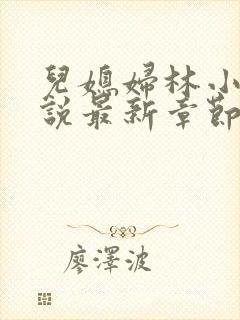 兒媳婦林小
說最新章節
廖澤波